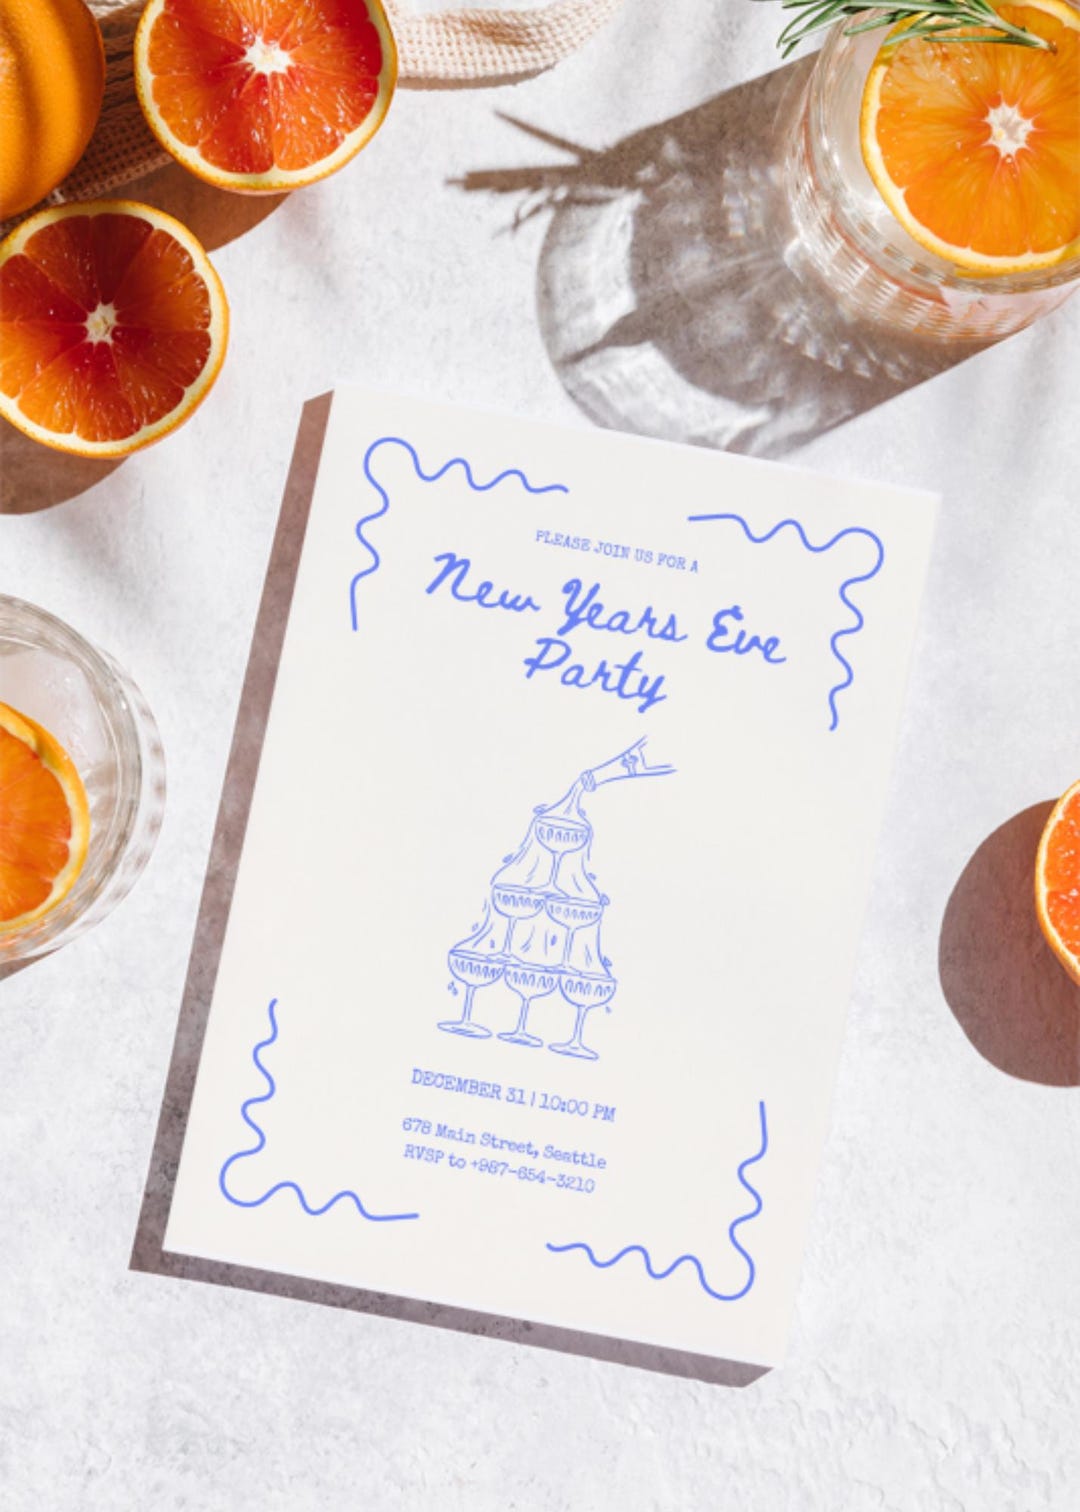 PLEASE JOIN US FOR A
New Years Eve
Party
DECEMBER 31 | 10:00 PM
678 Main Street, Seattle
RVSP to +987-654-3210